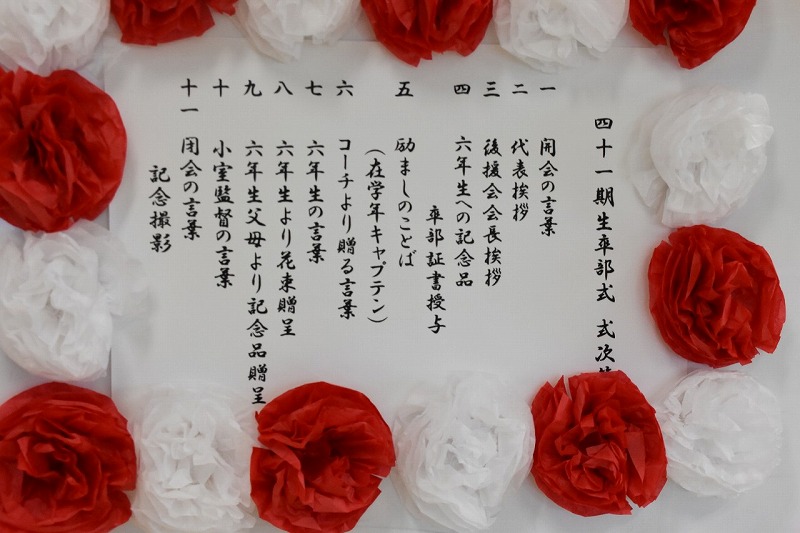 四十一期生卒部式 式次
一 開会の言葉
二 代表挨拶
三 後援会会長挨拶
四 六年生への記念品
卒部証書授与
五 励ましのことば
(在学年キャプテン)
六 コーチより贈る言葉
七 六年生の言葉
八 六年生より花束贈呈
九 六年生父母より記念品贈呈
十 小室監督の言葉
十一 閉会の言葉
記念撮影